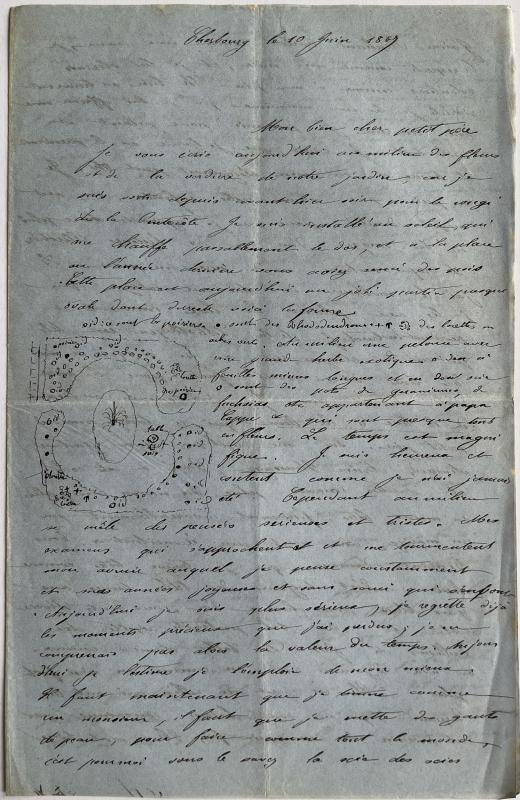 Cherbourg le 10 Juin 1867
Mon bien cher petit père
Je vous écris aujourd'hui au milieu des fleurs
et de la verdure de notre jardin, car je
suis sorti depuis avant hier soir pour le congé
de la Pentecôte. Je suis installé au soleil qui
me chauffe passablement le dos, et à la place
où l'année dernière vous aviez semé des pois
Cette place est aujourd'hui un joli parterre presque
ovale dont voici la forme
sont les rosiers • sont des Rhododendrons
au milieu une pelouse avec
une grande herbe exotique
feuilles minces longues et en
o sont des pots de geraniums, de
fuchsias, etc appartenant à papa
qui sont presque tous
en fleurs. Le temps est magni
fique. Je suis heureux et
content comme je n'ai jamais
été Cependant au milieu
se mêle des pensées sérieuses et tristes. Mes
examens qui s'approchent et me tourmentent
mon avenir auquel je pense constamment
et mes années joyeuses et sans souci qui s'enfuient
Aujourd'hui je suis plus sérieux, je regrette déjà
les moments précieux que j'ai perdus, je ne
comprenais pas alors la valeur du temps. Aujour
d'hui je l'estime je l'emploie de mon mieux
Il faut maintenant que je
un monsieur, il faut que je mette des gants
de peau, pour faire comme tout le monde,
c'est pour moi vous le savez la scie des scies